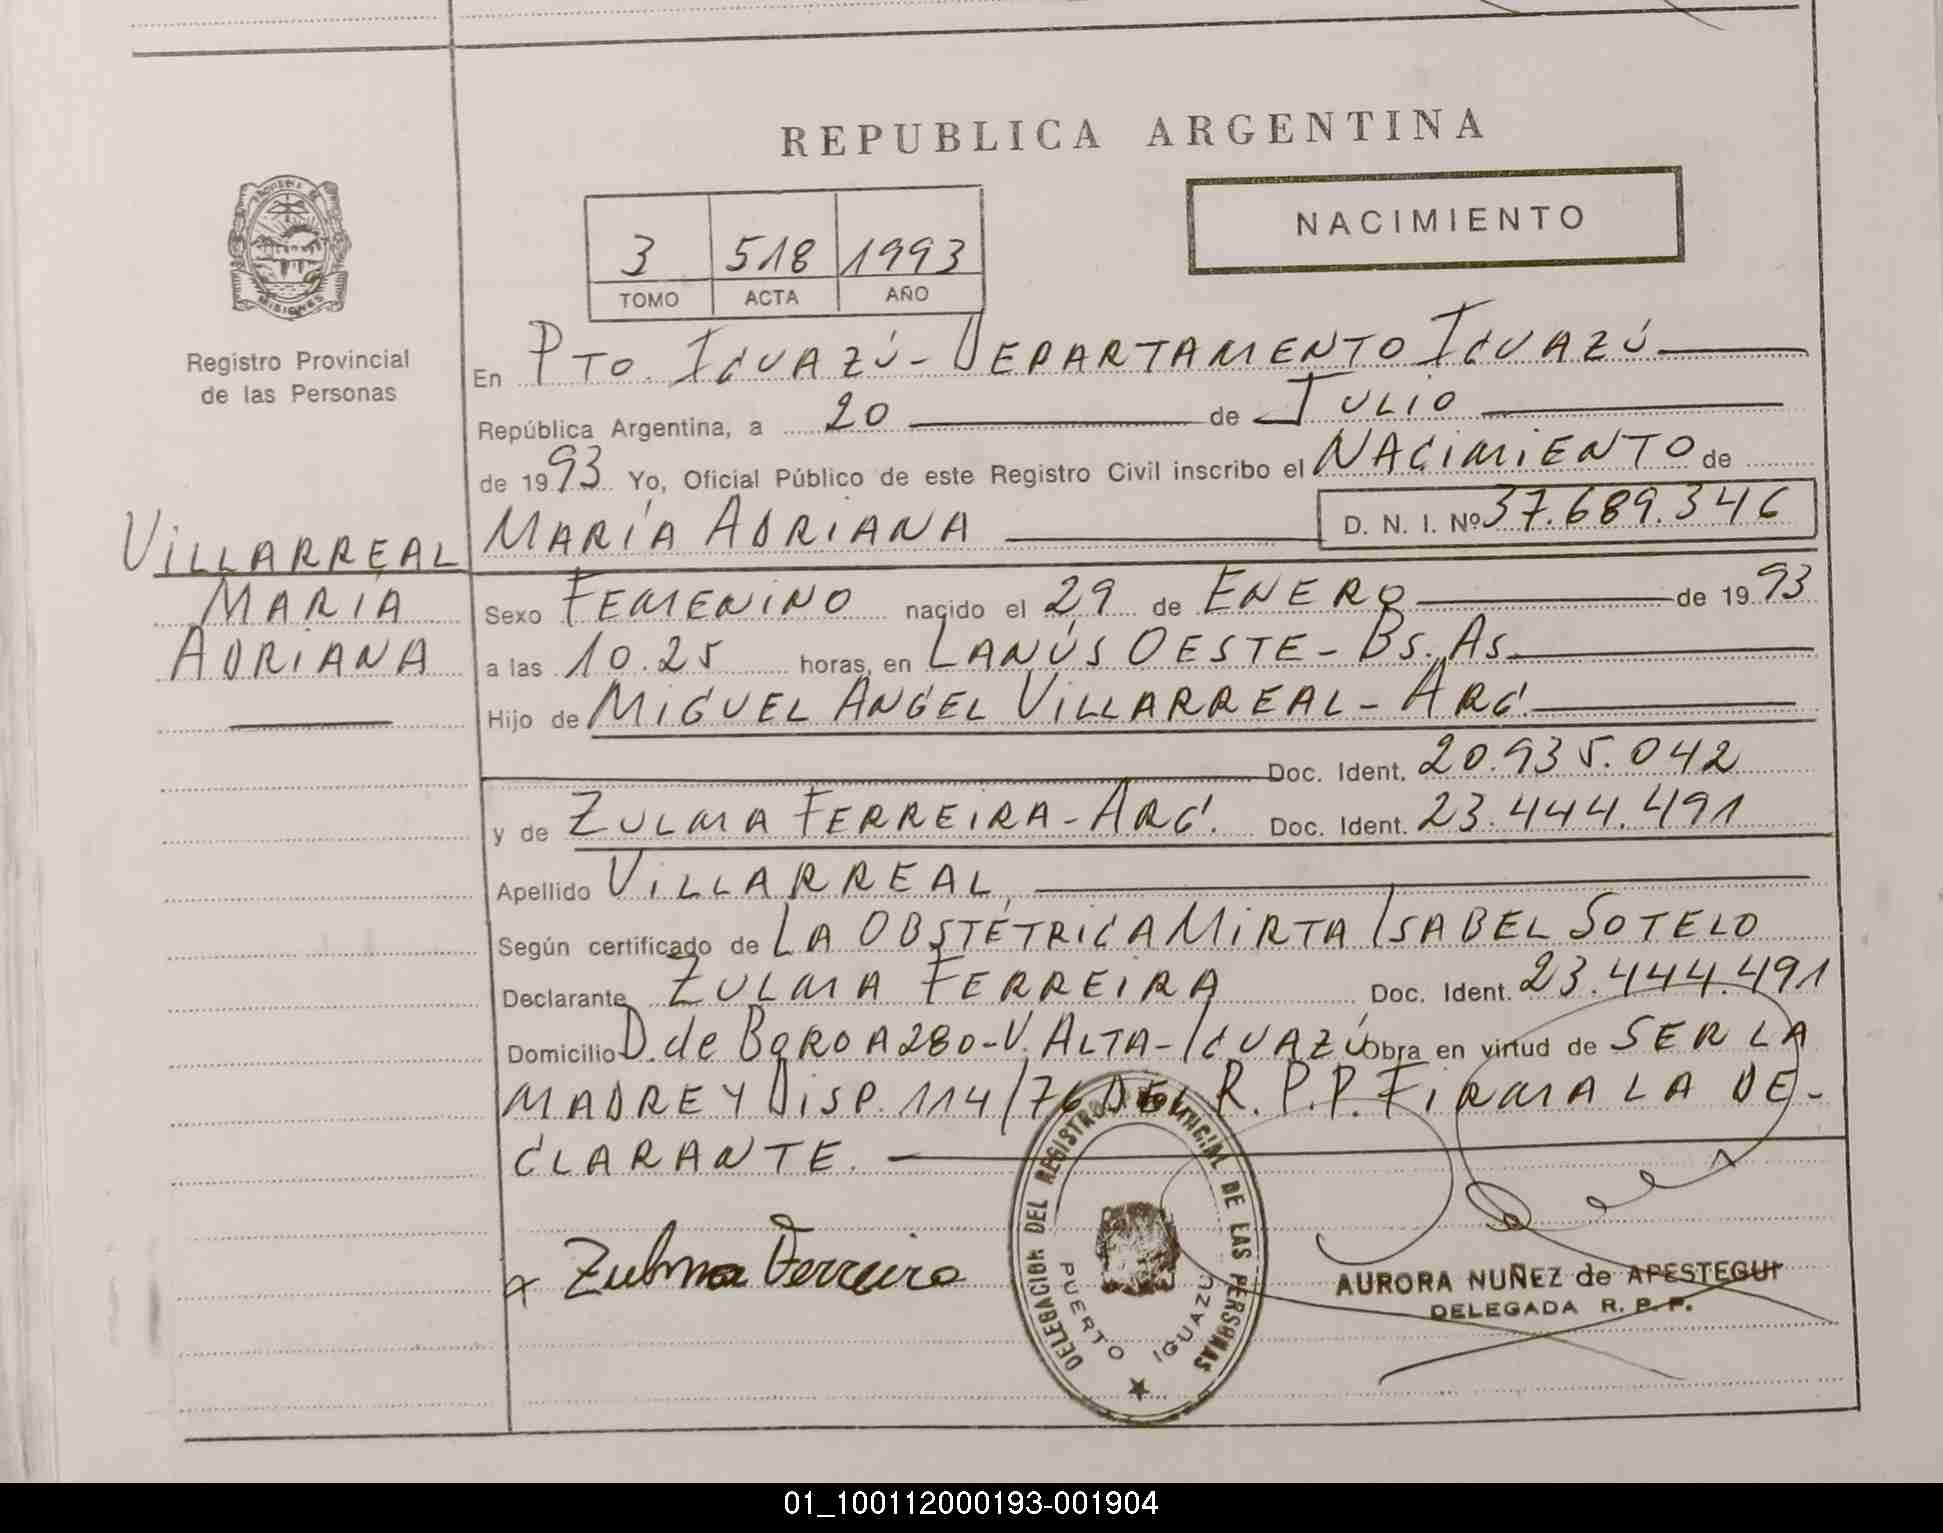 REPUBLICA ARGENTINA
NACIMIENTO
3 518 1993
TOMO ACTA AÑO
MISIONES
Registro Provincial
de las Personas
En PTO. IGUAZÚ - DEPARTAMENTO IGUAZÚ
República Argentina, a 20 de JULIO
de 1993 Yo, Oficial Público de este Registro Civil inscribo el NACIMIENTO de
MARÍA ADRIANA D. N. I. Nº 37.689.346
VILLARREAL
MARÍA
ADRIANA
Sexo FEMENINO nacido el 29 de ENERO de 1993
a las 10.25 horas, en LANÚS OESTE - BS. AS.
Hijo de MIGUEL ANGEL VILLARREAL - ARG.
Doc. Ident. 20.935.042
y de ZULMA FERREIRA - ARG. Doc. Ident. 23.444.491
Apellido VILLARREAL
Según certificado de LA OBSTÉTRICA MIRTA ISABEL SOTELO
Declarante ZULMA FERREIRA Doc. Ident. 23.444.491
Domicilio D. de BOROA 280 - V. ALTA - IGUAZÚ Obra en virtud de SER LA
MADRE Y DISP. 114/76 DEL R. P. P. FIRMA LA DE-
CLARANTE.
x Zulma Ferreira
DELEGACION DEL REGISTRO PROVINCIAL DE LAS PERSONAS
PUERTO IGUAZU
AURORA NUÑEZ de APESTEGUI
DELEGADA R. P. P.
01_100112000193-001904